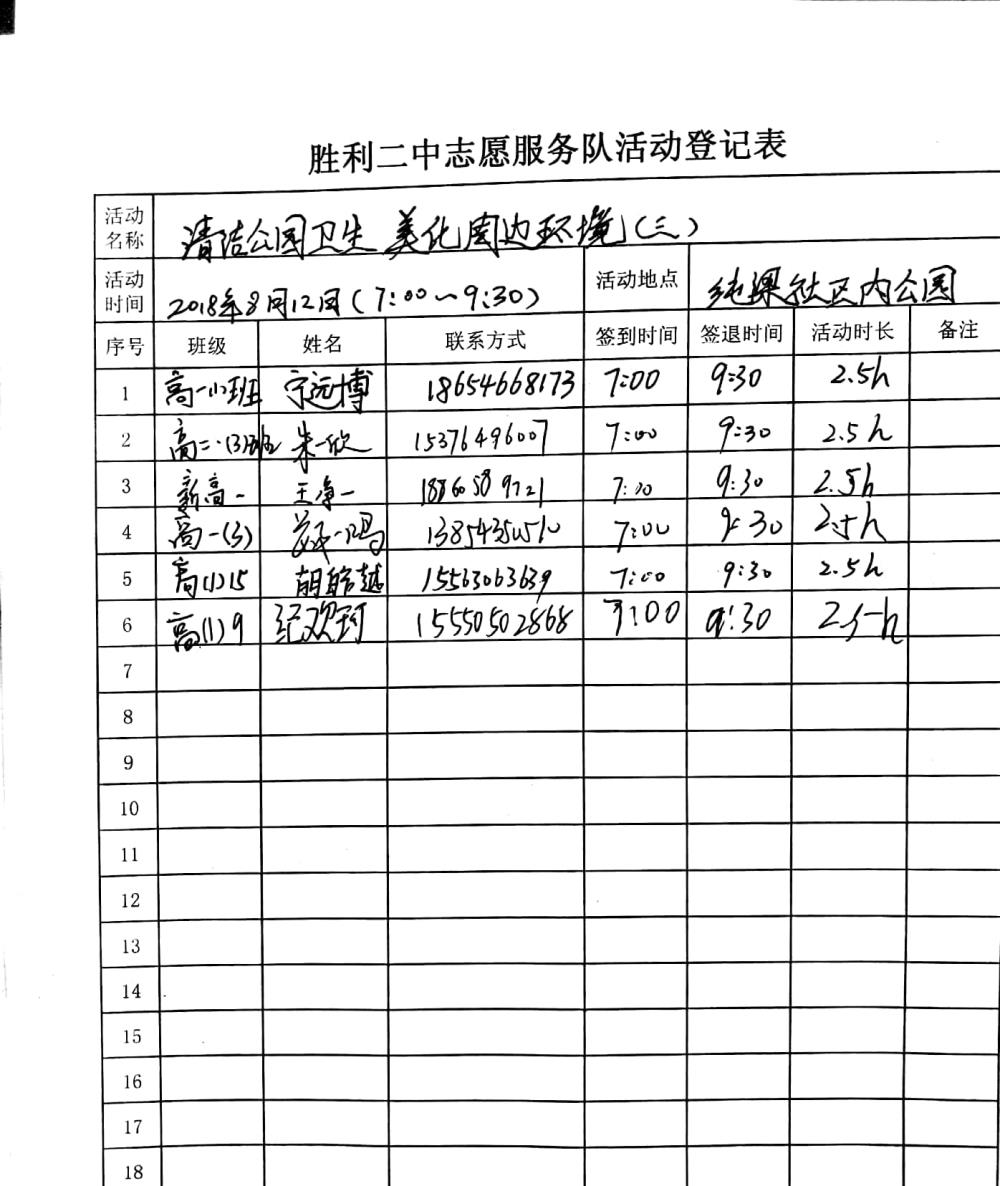 胜利二中志愿服务队活动登记表
活动名称 清洁公园卫生 美化周边环境(三)
活动时间 2018年8月12日(7:00~9:30) 活动地点 社区内公园
序号 班级 姓名 联系方式 签到时间 签退时间 活动时长 备注
1 高一 班 宁远博 18654668173 7:00 9:30 2.5h
2 高二·(3)班 朱一欣 15376496007 7:00 9:30 2.5h
3 新高一 王净一 18866 7:00 9:30 2.5h
4 高一(3) 一鸣 7:00 9:30 2.5h
5 高(1)15 胡皓越 15563063639 7:00 9:30 2.5h
6 高(1)9 15550502868 7:00 9:30 2.5h
7
8
9
10
11
12
13
14
15
16
17
18